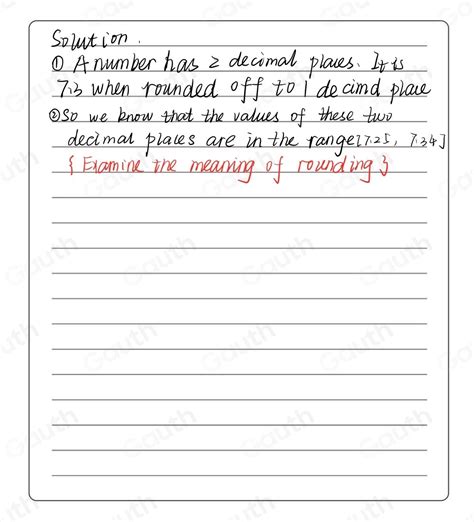 Solution.
① A number has 2 decimal places. It is
7.3 when rounded off to 1 decimal place
② So we know that the values of these two
decimal places are in the range [7.25, 7.34]
{Examine the meaning of rounding}
Gauth